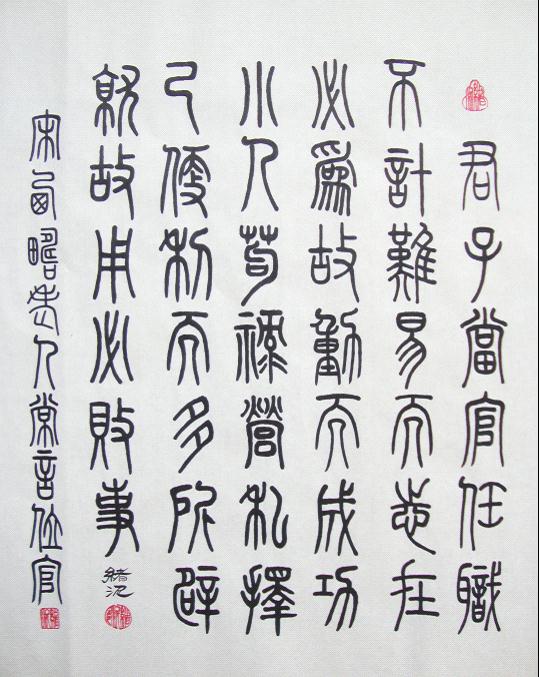 君子當官任職
不計難易而志在
必爲故動而成功
小人苟祿營私擇
己便利而多所辟
就故用必敗事
宋人常言位官